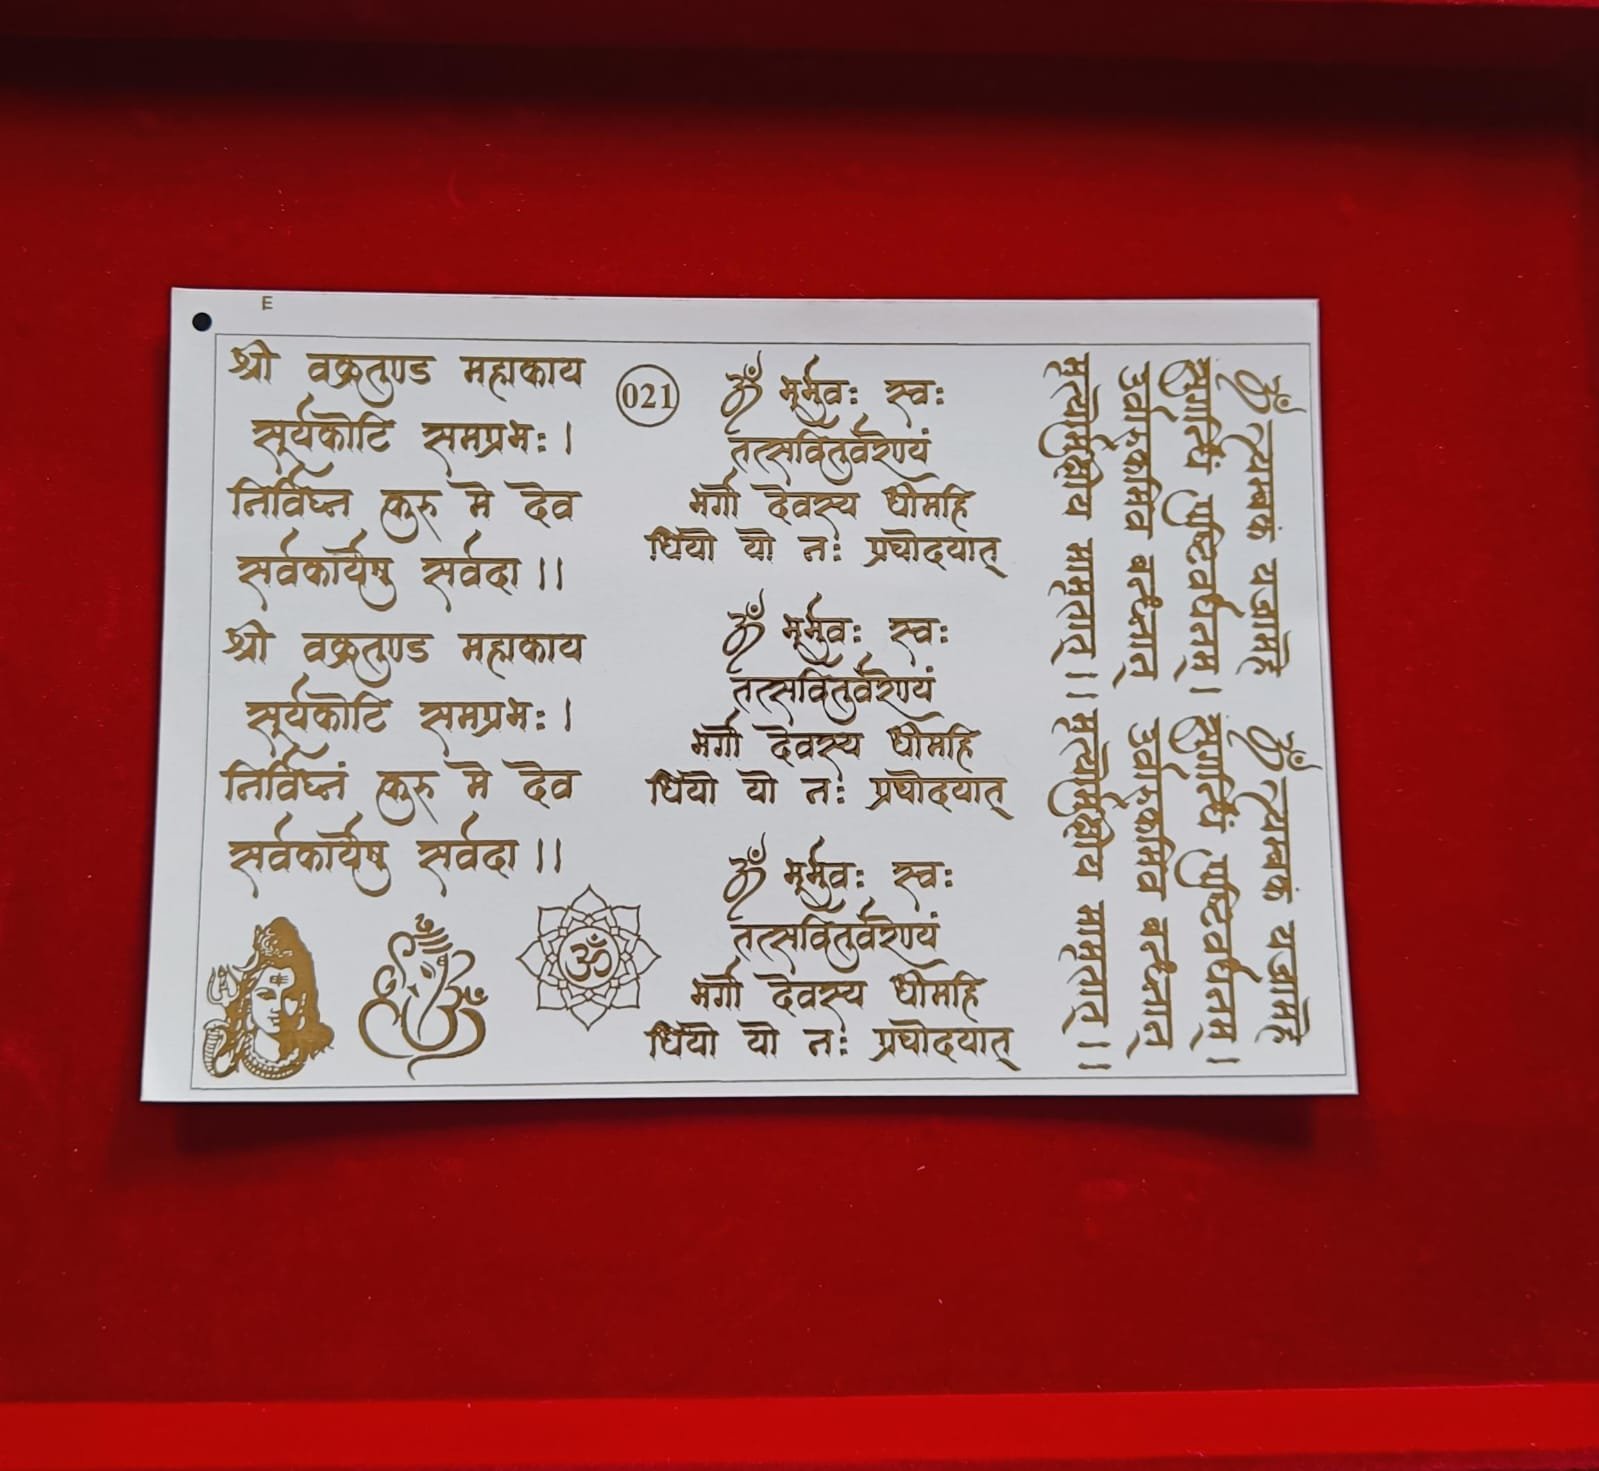 E
श्री वक्रतुण्ड महाकाय
सूर्यकोटि समप्रभः ।
निर्विघ्न कुरु मे देव
सर्वकार्येषु सर्वदा ।।
श्री वक्रतुण्ड महाकाय
सूर्यकोटि समप्रभः ।
निर्विघ्नं कुरु मे देव
सर्वकार्येषु सर्वदा ।।
021
ॐ भूर्भुवः स्वः
तत्सवितुर्वरेण्यं
भर्गो देवस्य धीमहि
धियो यो नः प्रचोदयात्
ॐ भूर्भुवः स्वः
तत्सवितुर्वरेण्यं
भर्गो देवस्य धीमहि
धियो यो नः प्रचोदयात्
ॐ भूर्भुवः स्वः
तत्सवितुर्वरेण्यं
भर्गो देवस्य धीमहि
धियो यो नः प्रचोदयात्
ॐ त्र्यम्बकं यजामहे
सुगन्धिं पुष्टिवर्धनम् ।
उर्वारुकमिव बन्धनान्
मृत्योर्मुक्षीय मामृतात् ।।
ॐ त्र्यम्बकं यजामहे
सुगन्धिं पुष्टिवर्धनम् ।
उर्वारुकमिव बन्धनान्
मृत्योर्मुक्षीय मामृतात् ।।
ॐ